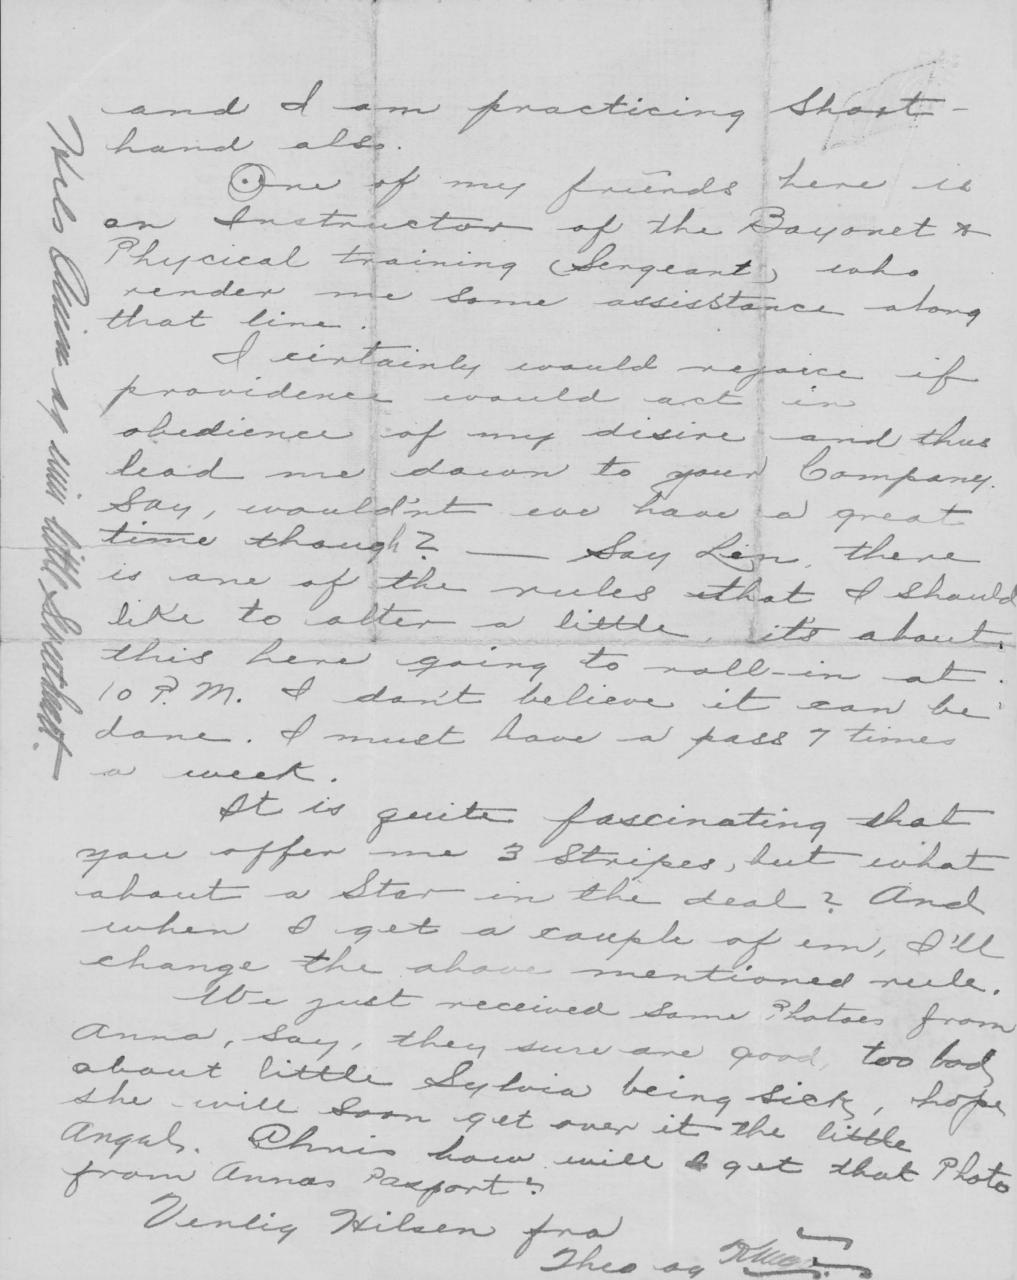 and I am practicing Short-
hand also.
One of my friends here is
an Instructor of the Bayonet &
Phycical training (Sergeant) who
render me some assisstance along
that line.
I cirtainly would rejoice if
providence would act in
obedience of my disire and thus
lead me down to your Company.
Say, would'nt we have a great
time though? — Say Len, there
is one of the rules that I should
like to alter a little, it's about
this here going to roll-in at
10 P.M. I don't believe it can be
done. I must have a pass 7 times
a week.
It is quite fascinating that
you offer me 3 Stripes, but what
about a Star in the deal? And
when I get a couple of em, I'll
change the above mentioned rule.
We just received some Photoes from
Anna, say, they sure are good, too bad
about little Sylvia being sick, hope
she will soon get over it the little
Angul. Chris how will I get that Photo
from Annas Pasport?
Venlig Hilsen fra
Theo og
Hils og min little Sweetheart.